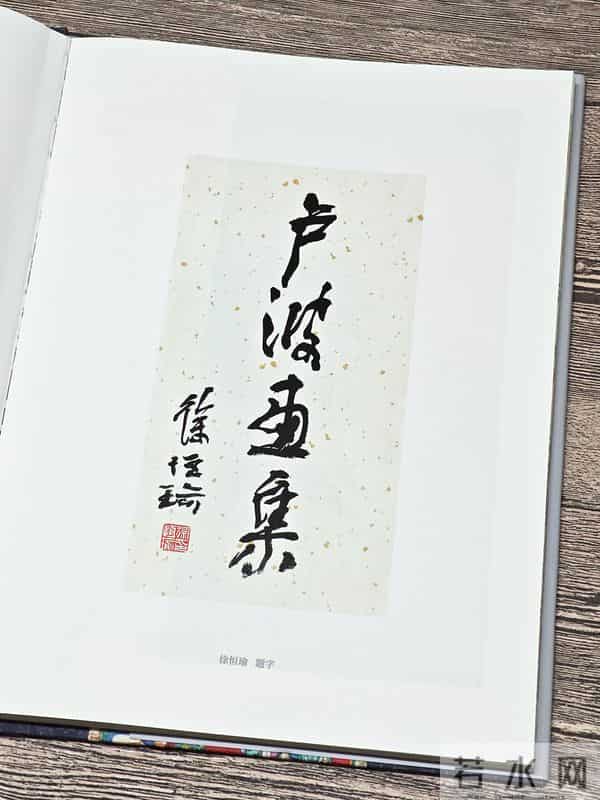 卢波画集
徐恒瑜
徐恒瑜 题字
若水网